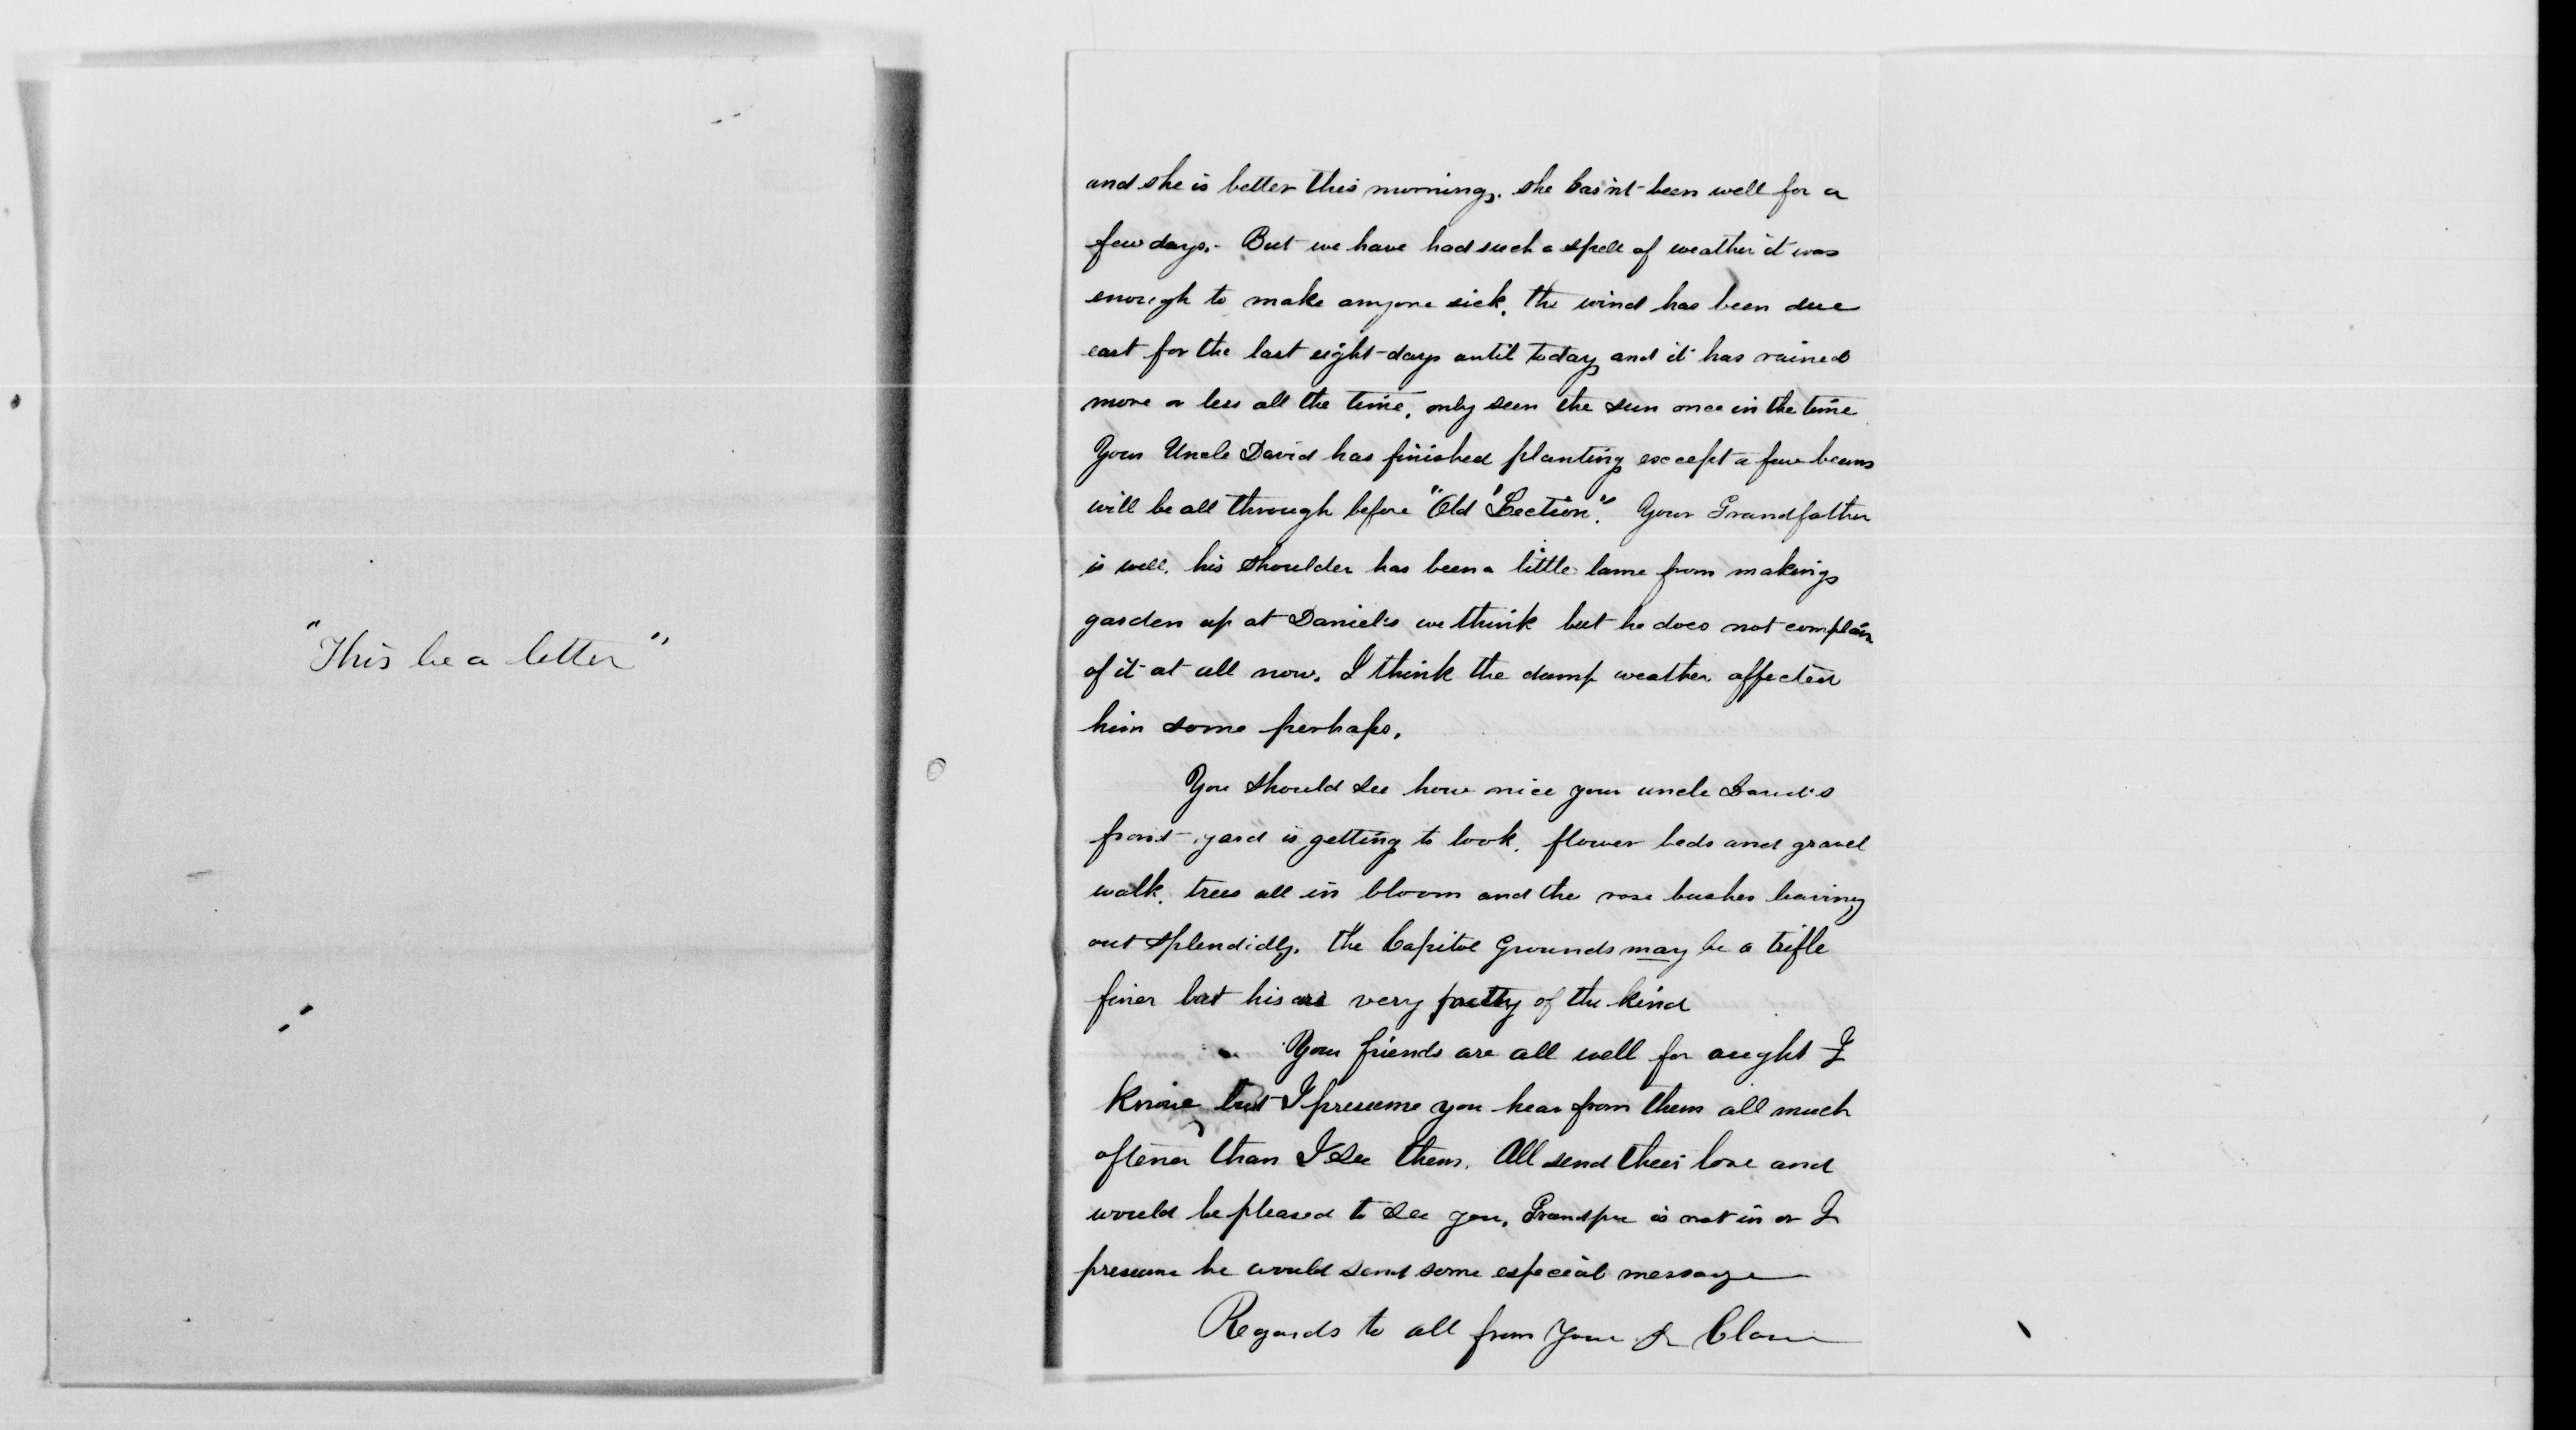 "This be a letter"
and she is better this morning. she has'nt been well for a
few days. - But we have had such a spell of weather it was
enough to make anyone sick, the wind has been due
east for the last eight days until today and it has rained
more or less all the time, only seen the sun once in the time
Your Uncle David has finished planting except a few beans
will be all through before "Old 'Lection". Your Grandfather
is well, his shoulder has been a little lame from making
garden up at Daniel's we think but he does not complain
of it at all now. I think the damp weather affected
him some perhaps.
You should see how nice your uncle David's
front yard is getting to look. flower beds and gravel
walk, trees all in bloom and the rose bushes leaving
out splendidly. the Capitol Grounds may be a trifle
finer but his are very pretty of the kind
Your friends are all well for aught I
know but I presume you hear from them all much
oftener than I see them. All send their love and
would be pleased to see you, Grandpa is not in or I
presume he would send some especial message
Regards to all from Your